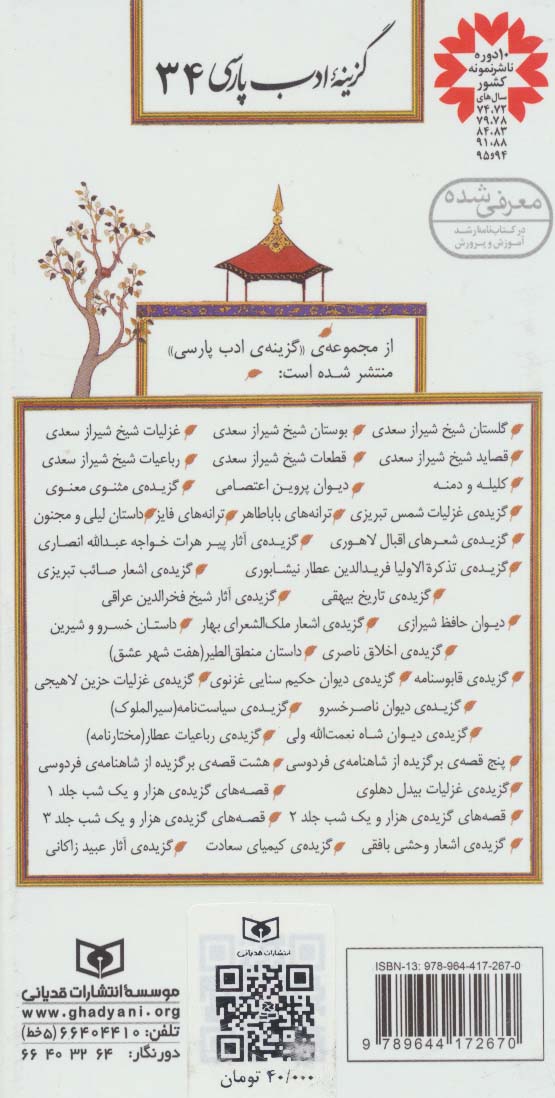 گزینهٔ ادب پارسی ۳۴
۱۰ دوره
ناشر نمونه
کشور
سال‌های
۷۴،۷۲
۷۹،۷۸
۸۴،۸۳
۹۱،۸۸
۹۴و۹۵
معرفی شده
در کتاب‌نامهٔ رشد
آموزش و پرورش
از مجموعه‌ی «گزینه‌ی ادب پارسی»
منتشر شده است:
گلستان شیخ شیراز سعدی بوستان شیخ شیراز سعدی غزلیات شیخ شیراز سعدی
قصاید شیخ شیراز سعدی قطعات شیخ شیراز سعدی رباعیات شیخ شیراز سعدی
کلیله و دمنه دیوان پروین اعتصامی گزیده‌ی مثنوی معنوی
گزیده‌ی غزلیات شمس تبریزی ترانه‌های باباطاهر ترانه‌های فایز داستان لیلی و مجنون
گزیده‌ی شعرهای اقبال لاهوری گزیده‌ی آثار پیر هرات خواجه عبدالله انصاری
گزیده‌ی تذکرة الاولیا فریدالدین عطار نیشابوری گزیده‌ی اشعار صائب تبریزی
گزیده‌ی تاریخ بیهقی گزیده‌ی آثار شیخ فخرالدین عراقی
دیوان حافظ شیرازی گزیده‌ی اشعار ملک‌الشعرای بهار داستان خسرو و شیرین
گزیده‌ی اخلاق ناصری داستان منطق‌الطیر(هفت شهر عشق)
گزیده‌ی قابوسنامه گزیده‌ی دیوان حکیم سنایی غزنوی گزیده‌ی غزلیات حزین لاهیجی
گزیده‌ی دیوان ناصرخسرو گزیده‌ی سیاست‌نامه(سیرالملوک)
گزیده‌ی دیوان شاه نعمت‌الله ولی گزیده‌ی رباعیات عطار(مختارنامه)
پنج قصه‌ی برگزیده از شاهنامه‌ی فردوسی هشت قصه‌ی برگزیده از شاهنامه‌ی فردوسی
گزیده‌ی غزلیات بیدل دهلوی قصه‌های گزیده‌ی هزار و یک شب جلد ۱
قصه‌های گزیده‌ی هزار و یک شب جلد ۲ قصه‌های گزیده‌ی هزار و یک شب جلد ۳
گزیده‌ی اشعار وحشی بافقی گزیده‌ی کیمیای سعادت گزیده‌ی آثار عبید زاکانی
ISBN-13: 978-964-417-267-0
9 789644 172670
انتشارات قدیانی
۴۰/۰۰۰ تومان
موسسهٔ انتشارات قدیانی
www.ghadyani.org
تلفن: ۶۶۴۰۴۴۱۰ (۵خط)
دورنگار: ۶۶ ۴۰ ۳۲ ۶۴